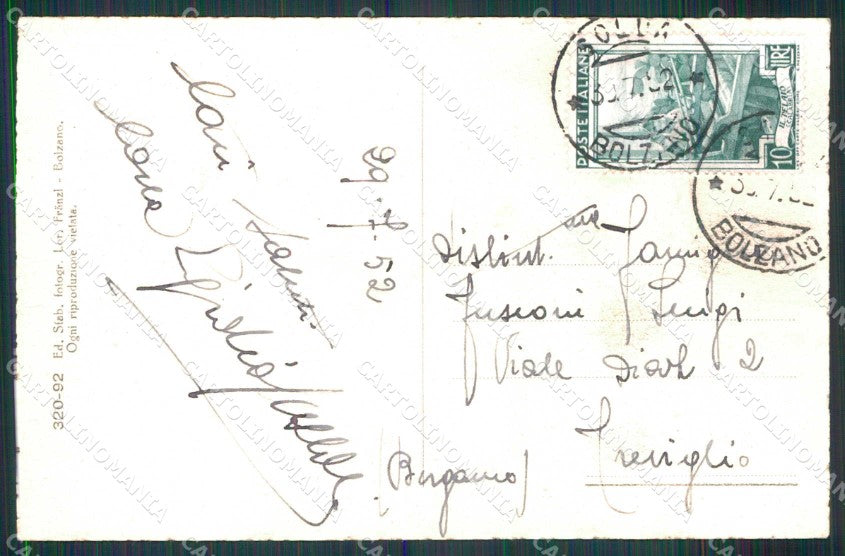 320-92 Ed. Stab. fotogr. Leo Fränzl - Bolzano.
Ogni riproduzione vietata.
Cari saluti
29-7-52
POSTE ITALIANE
10 LIRE
SOLDA
30.7.52
BOLZANO
BOLZANO
Distint. ma Famig
Fusconi Luigi
Viale Diaz 2
Treviglio
(Bergamo)
CARTOLINOMANIA